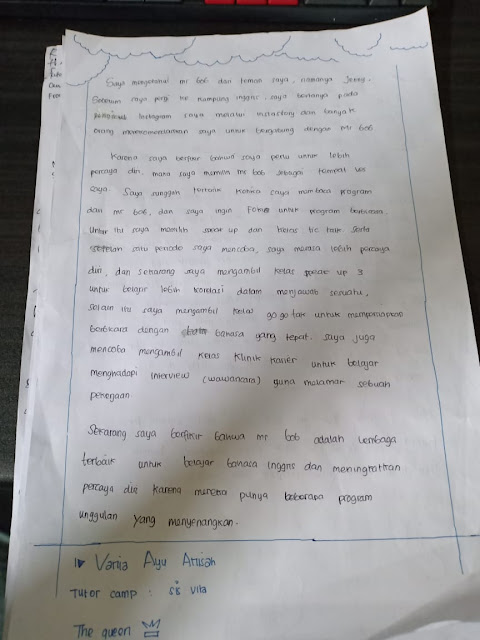 Saya mengetahui mr bob dari teman saya, namanya Jenny.
Sebelum saya pergi ke kampung inggris, saya bertanya pada
Instagram saya melalui instastory dan banyak
orang merekomendasikan saya untuk bergabung dengan mr bob
Karena saya berfikir bahwa saya perlu untuk lebih
percaya diri, maka saya memilih mr bob sebagai tempat les
saya. Saya sungguh tertarik ketika saya membaca program
dari mr bob, dan saya ingin Fokus untuk program berbicara.
Untuk itu saya memilih speak up dan kelas tic talk serta
setelah satu periode saya mencoba, saya merasa lebih percaya
diri, dan sekarang saya mengambil kelas speak up 3
untuk belajar lebih korelasi dalam menjawab sesuatu,
selain itu saya mengambil kelas go go talk untuk memperlancar
berbicara dengan bahasa yang tepat. saya juga
mencoba mengambil kelas Klinik Karier untuk belajar
menghadapi interview (wawancara) guna melamar sebuah
pekerjaan
Sekarang saya berfikir bahwa mr bob adalah lembaga
terbaik untuk belajar bahasa inggris dan meningkatkan
percaya diri karena mereka punya beberapa program
unggulan yang menyenangkan.
Vania Ayu Anisah
Tutor camp : Vita
The queen